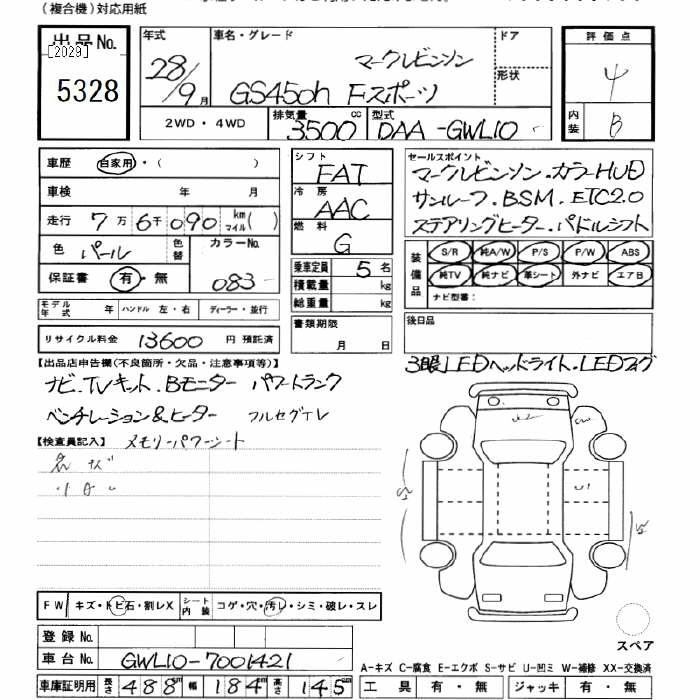 (複合機)対応用紙
出品No. [2029] 5328
年式 28/9月
車名・グレード マークレビンソン GS450h Fスポーツ
ドア
形状
評価点 4
内装 B
2WD・4WD 排気量 3500cc 型式 DAA-GWL10
車歴 自家用・( )
車検 年 月
走行 7万6千090km マイル( )
色 パール 色替 カラーNo. 083
保証書 有・無
モデル年式 年 ハンドル 左・右 ディーラー・並行
リサイクル料金 13600 円 預託済
シフト FAT
冷房 AAC
燃料 G
乗車定員 5名
積載量 kg
総重量 kg
書類期限 月 日
セールスポイント
マークレビンソン.カラーHUD
サンルーフ.BSM.ETC2.0
ステアリングヒーター.パドルシフト
装備品 S/R 純A/W P/S P/W ABS
純TV 純ナビ 革シート 外ナビ エアB
ナビ型番:
後日品
3眼LEDヘッドライト.LEDフォグ
【出品店申告欄(不良箇所・欠品・注意事項等)】
ナビ.TVキット.Bモニター パワートランク
ベンチレーション&ヒーター フルセグTV
【検査員記入】 メモリーパワーシート
FW キズ・トビ石・割レX シート内装 コゲ・穴・汚レ・シミ・破レ・スレ
登録No.
車台No. GWL10-7001421
車庫証明用 長さ 488cm 幅 184cm 高さ 145cm
スペア
A-キズ C-腐食 E-エクボ S-サビ U-凹ミ W-補修 XX-交換済
工具 有・無 ジャッキ 有・無